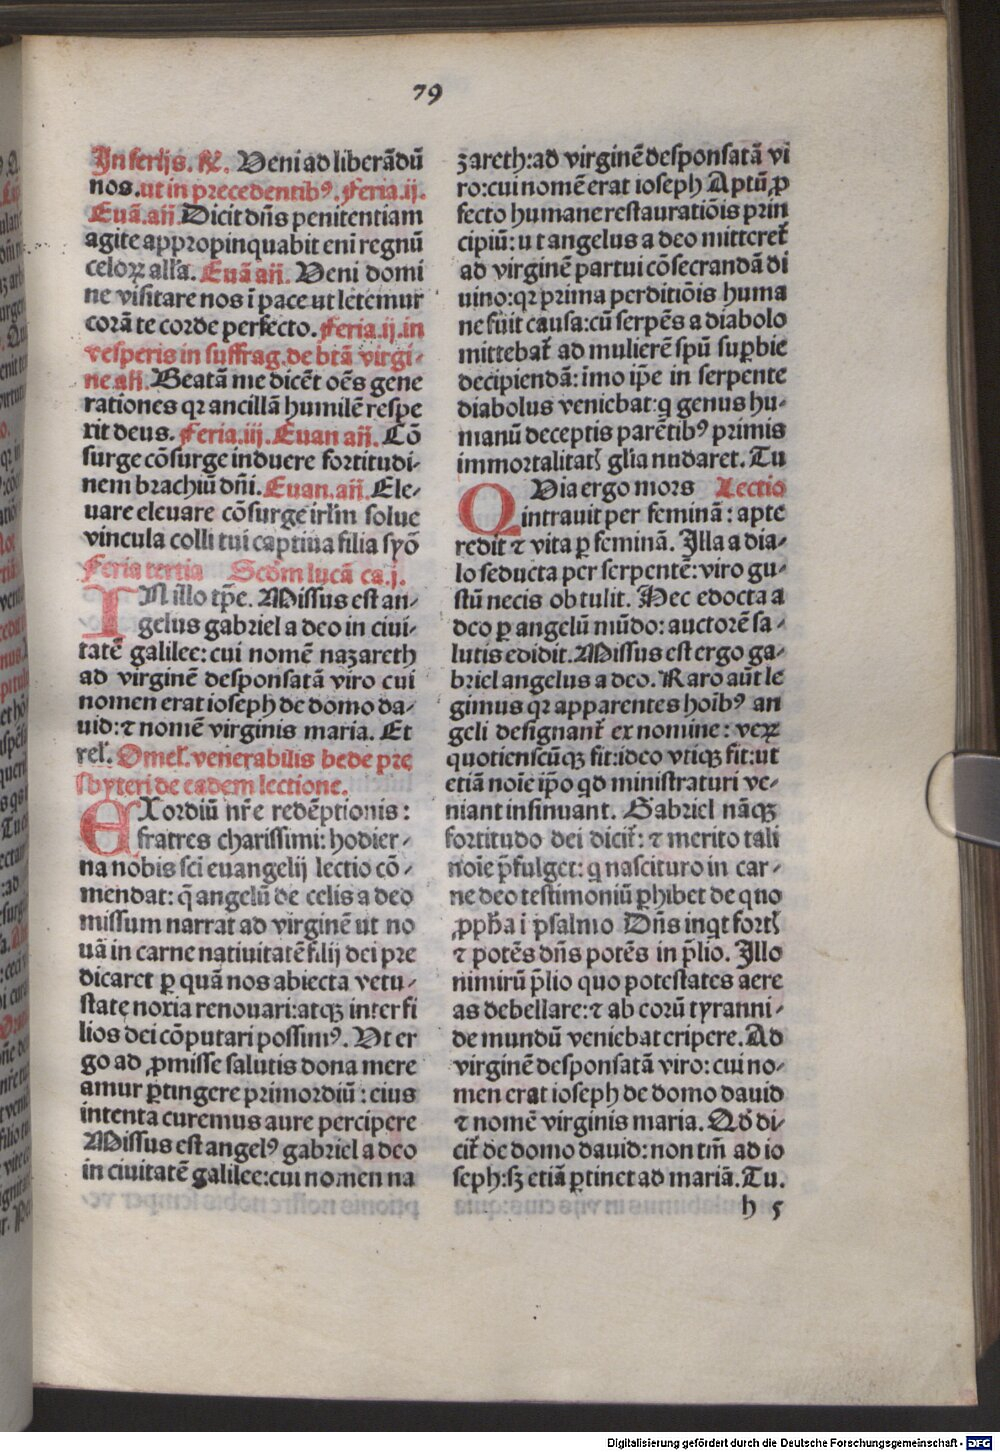 79
In ferijs. ꝶ. Veni ad liberãdũ
nos. ut in precedentibꝰ. Feria.ij.
Euã.añ. Dicit dñs penitentiam
agite appropinquabit eni regnũ
celoꝝ alľa. Euã añ. Veni domi
ne visitare nos ĩ pace ut letemur
corã te corde perfecto. Feria.ij.in
vesperis in suffrag. de btã virgi-
ne añ. Beatã me dicẽt oẽs gene
rationes qꝛ ancillã humilẽ respe
xit deus. Feria.iij. Euan añ. Cõ
surge cõsurge induere fortitudi-
nem brachiũ dñi. Euan.añ. Ele-
uare eleuare cõsurge irľm solue
vincula colli tui captiua filia syõ
Feria tertia Scďm lucã ca.j.
IN illo tp̃e. Missus est an-
gelus gabriel a deo in ciui-
tatẽ galilee: cui nomẽ nazareth
ad virginẽ desponsatã viro cui
nomen erat ioseph de domo da-
uid: ⁊ nomẽ virginis maria. Et
reľ. Omeľ. venerabilis bede pre
sbyteri de eadem lectione.
EXordiũ nr̃e redẽptionis:
fratres charissimi: hodier-
na nobis sci euangelij lectio cõ-
mendat: q̃ angelũ de celis a deo
missum narrat ad virginẽ ut no
uã in carne natiuitatẽ filij dei pre
dicaret ꝑ quã nos abiecta vetu-
state noxia renouari: atqꝫ inter fi
lios dei cõputari possimꝰ. Ut er
go ad ꝓmisse salutis dona mere
amur ꝑtingere primordiũ: eius
intenta curemus aure percipere
Missus est angelꝰ gabriel a deo
in ciuitatẽ galilee: cui nomen na
zareth: ad virginẽ desponsatã vi
ro: cui nomẽ erat ioseph Aptũ ꝓ
fecto humane restauratiõis prin
cipiũ: ut angelus a deo mitteret̃
ad virginẽ partui cõsecrandã di
uino: qꝛ prima perditiõis huma
ne fuit causa: cũ serpẽs a diabolo
mittebat̃ ad mulierẽ spũ suꝑbie
decipiendã: imo ip̃e in serpente
diabolus veniebat: q̃ genus hu-
manũ deceptis parẽtibꝰ primis
immortalitatꝭ glĩa nudaret. Tu
QVia ergo mors Lectio
intrauit per feminã: apte
redit ⁊ vita ꝑ feminã. Illa a dia-
lo seducta per serpentẽ: viro gu-
stũ necis obtulit. Hec edocta a
deo ꝑ angelũ mũdo: auctorẽ sa-
lutis edidit. Missus est ergo ga-
briel angelus a deo. Raro aũt le
gimus qꝛ apparentes hoĩbꝰ an
geli designant̃ ex nomine: veꝝ
quotienscũqꝫ fit: ideo vtiqꝫ fit: ut
etiã noĩe ip̃o qď ministraturi ve-
niant insinuant. Gabriel nãqꝫ
fortitudo dei dicit̃: ⁊ merito tali
noĩe p̃fulget: q̃ nascituro in car-
ne deo testimoniũ ꝑhibet de quo
ꝓpħa ĩ psalmo Dñs inqt fortꝭ
⁊ potẽs dñs potẽs in p̃lio. Illo
nimirũ p̃lio quo potestates aere
as debellare: ⁊ ab eorũ tyranni-
de mundũ veniebat eripere. Ad
virginẽ desponsatã viro: cui no-
men erat ioseph de domo dauid
⁊ nomẽ virginis maria. Qď di-
cit̃ de domo dauid: non tm̃ ad io
seph: sꝫ etiã ꝑtinet ad mariã. Tu.
h 5
Digitalisierung gefördert durch die Deutsche Forschungsgemeinschaft - DFG